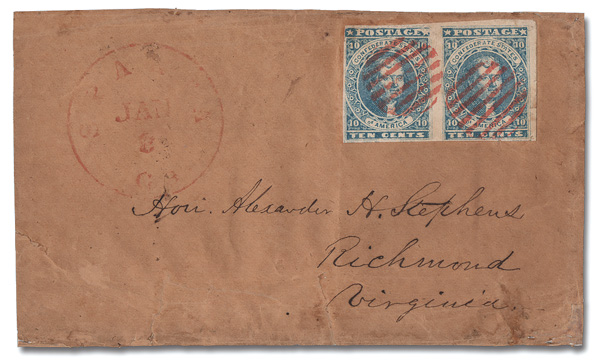 POSTAGE POSTAGE
10 CONFEDERATE STATES 10 10 CONFEDERATE STATES 10
OF AMERICA OF AMERICA
10 10 10 10
TEN CENTS TEN CENTS
JAN
Hon. Alexander H. Stephens
Richmond
Virginia.